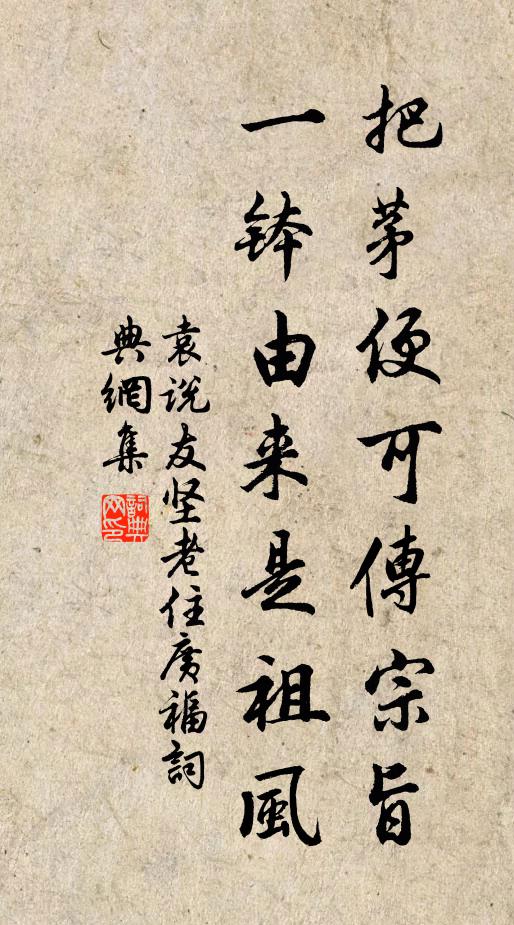 把茅便可傳宗旨
一鉢由来是祖風
袁説友坚老住廣福詞
典網集
詞典
网印